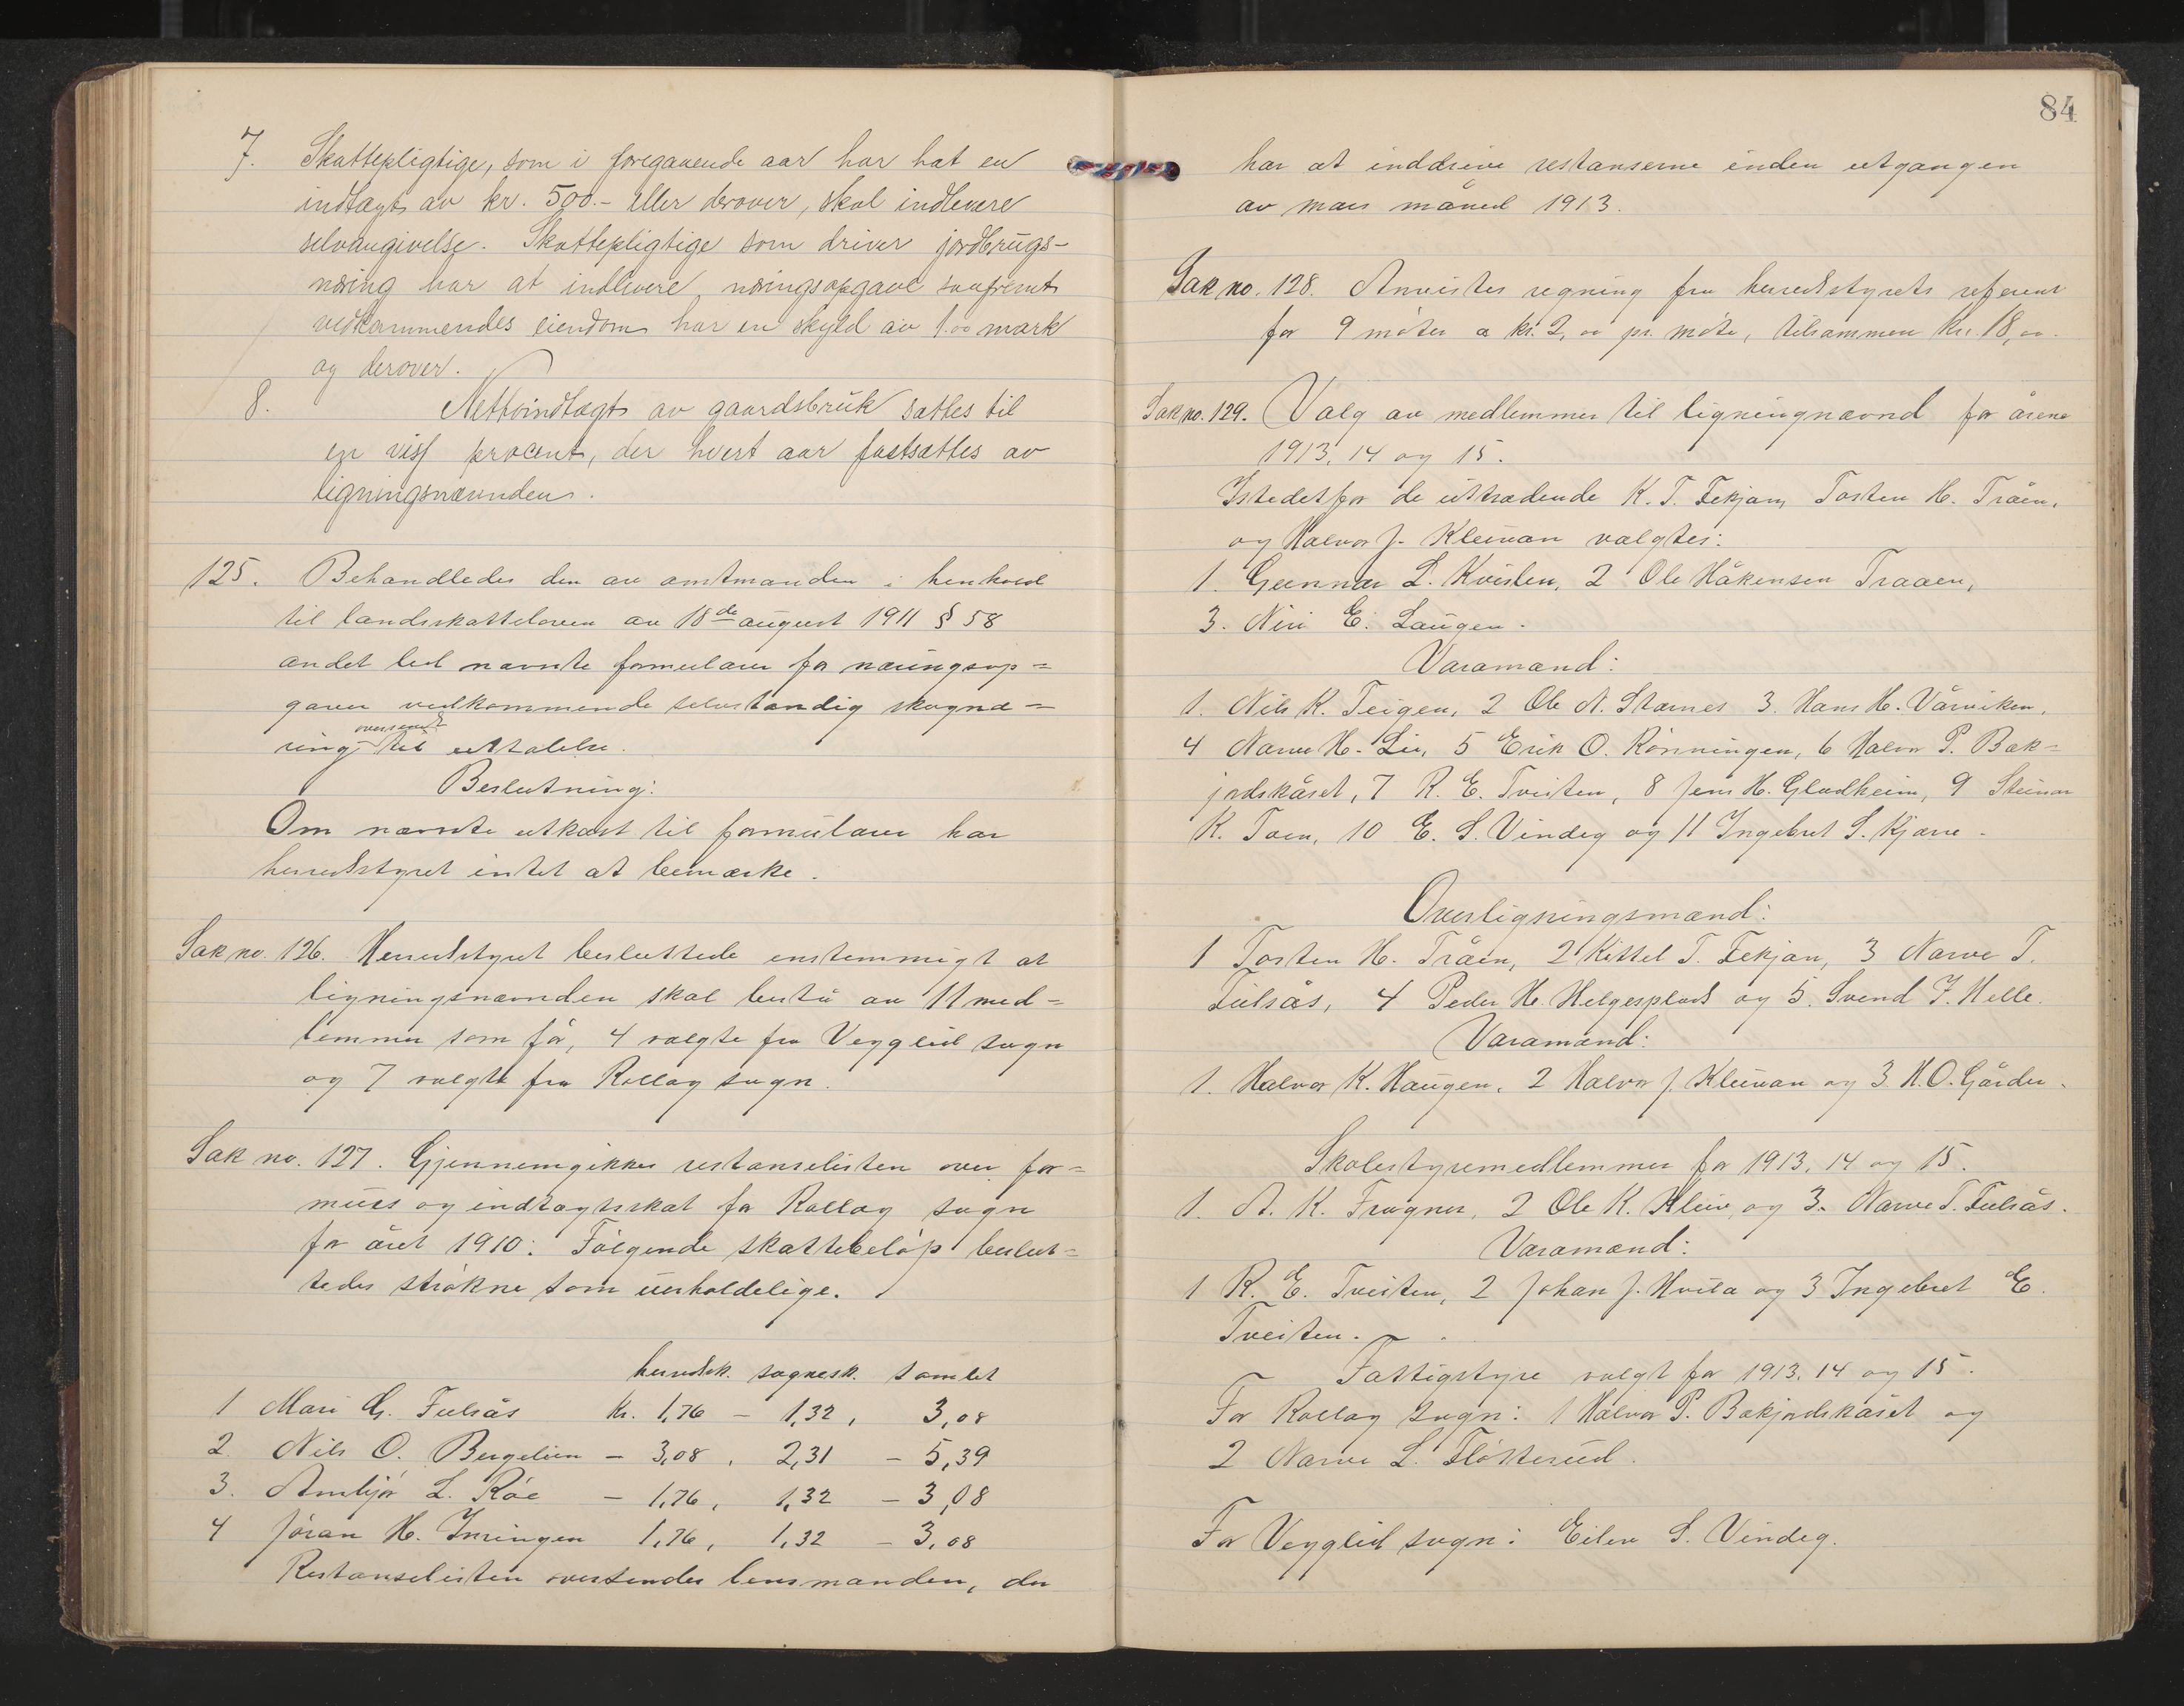 7. Skattepligtige, som i foregaaende aar har hat en
indtægt av kr. 500.- eller derover, skal indlevere
selvangivelse. Skattepligtige som driver jordbrugs-
næring har at indlevere næringsopgave saafremt
vedkommendes eiendom har en skyld av 1.00 mark
og derover.
8. Nettoindtægt av gaardsbruk sættes til
en viss procent, der hvert aar fastsættes av
ligningsnævnden.
125. Behandledes den av amtmanden i henhold
til landsskatteloven av 18de august 1911 § 58
andet led nævnte formularer for næringsop=
gaver vedkommende selvstændig skognæ=
oversendt
ring til uttalelse.
Beslutning:
Om nævnte utkast til formularer har
herredstyret intet at bemærke.
Sak no. 126. Herredstyret besluttede enstemmigt at
ligningsnævnden skal bestå av 11 med=
lemmer som før, 4 valgte fra Veggli sogn
og 7 valgte fra Rollag sogn.
Sak no. 127. Gjennemgikkes restanselisten over for=
mues og indtægtsskat for Rollag sogn
for året 1910. Følgende skattebeløp beslut=
tedes strøkne som uerholdelige.
herredsk. sognesk. samlet
1 Mari G. Fulsås Kr. 1,76 - 1,32, 3,08
2 Nils O. Bergelien - 3,08, 2,31 - 5,39
3. Ambjør L. Róe - 1,76, 1,32 - 3,08
4 Jøran H. 1,76, 1,32 - 3,08
Restanselisten oversendes lensmanden, der
84
har at inddrive restanserne inden utgangen
av mars måned 1913.
Sak no. 128. Anvistes regning fra herredstyrets referent
for 9 møter a kr. 2,00 pr. møte, tilsammen kr. 18,00.
Sak no. 129. Valg av medlemmer til ligningnævnd for årene
1913, 14 og 15.
Istedetfor de uttrædende K. T. Fekjan, Tosten H. Tråen,
og Halvor J. Kleivan valgtes:
1. Gunnar L. Kvislen, 2 Ole Håkensen Traaen,
3. Niri E. Laugen.
Varamænd:
1. Nils K. Teigen, 2 Ole N. Stærnes 3. Hans H. Vårviken,
4 Narve H. Lie, 5 Erik O. Rønningen, 6 Halvor P. Bak=
jordskåset, 7 R. E. Tveiten, 8 Jens H. Gladheim, 9 Steinar
K. Toen, 10 E. S. Vindeg og 11 Ingebret S. Kjærre.
Overligningsmænd:
1 Tosten H. Tråen, 2 Kittel T. Fekjan, 3 Narve T.
Fulsås, 4 Peder H. Helgesplads og 5. Svend J. Helle.
Varamænd:
1. Halvor K. Haugen, 2 Halvor J. Kleivan og 3 H. O. Gården.
Skolestyremedlemmer for 1913, 14 og 15.
1. A. K. Frogner, 2 Ole K. Kleiv, og 3. Narve T. Fulsås.
Varamænd:
1 R. E. Tveiten, 2 Johan J. Hvila og 3 Ingebret E.
Tveiten.
Fattigstyre valgt for 1913, 14 og 15.
For Rollag sogn: 1 Halvor P. Bakjordskåset og
2 Narve L. Fløtterud.
For Veggli sogn: Eilev S. Vindeg.